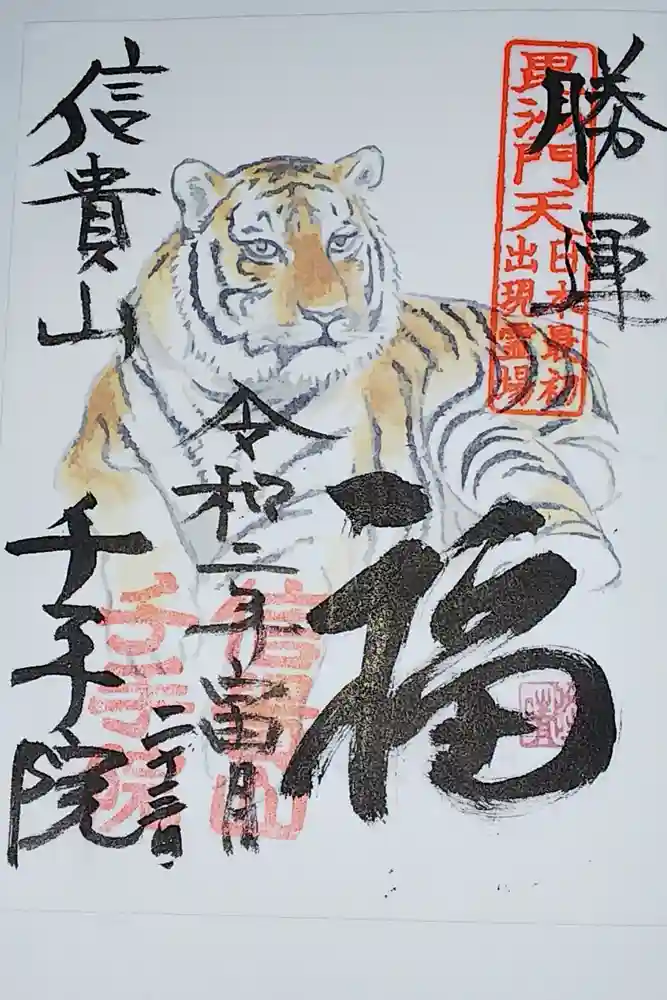 勝運
毘沙門天
日本最初
出現霊場
福
令和二年
月
二十三日
信貴山
千手院
信貴山
千手院